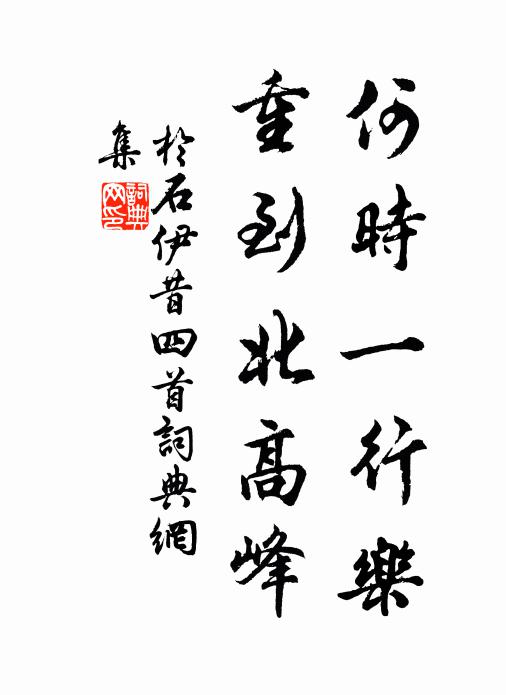 何時一行樂
重到北高峰
於石伊昔四首詞典網
集
詞典
网印